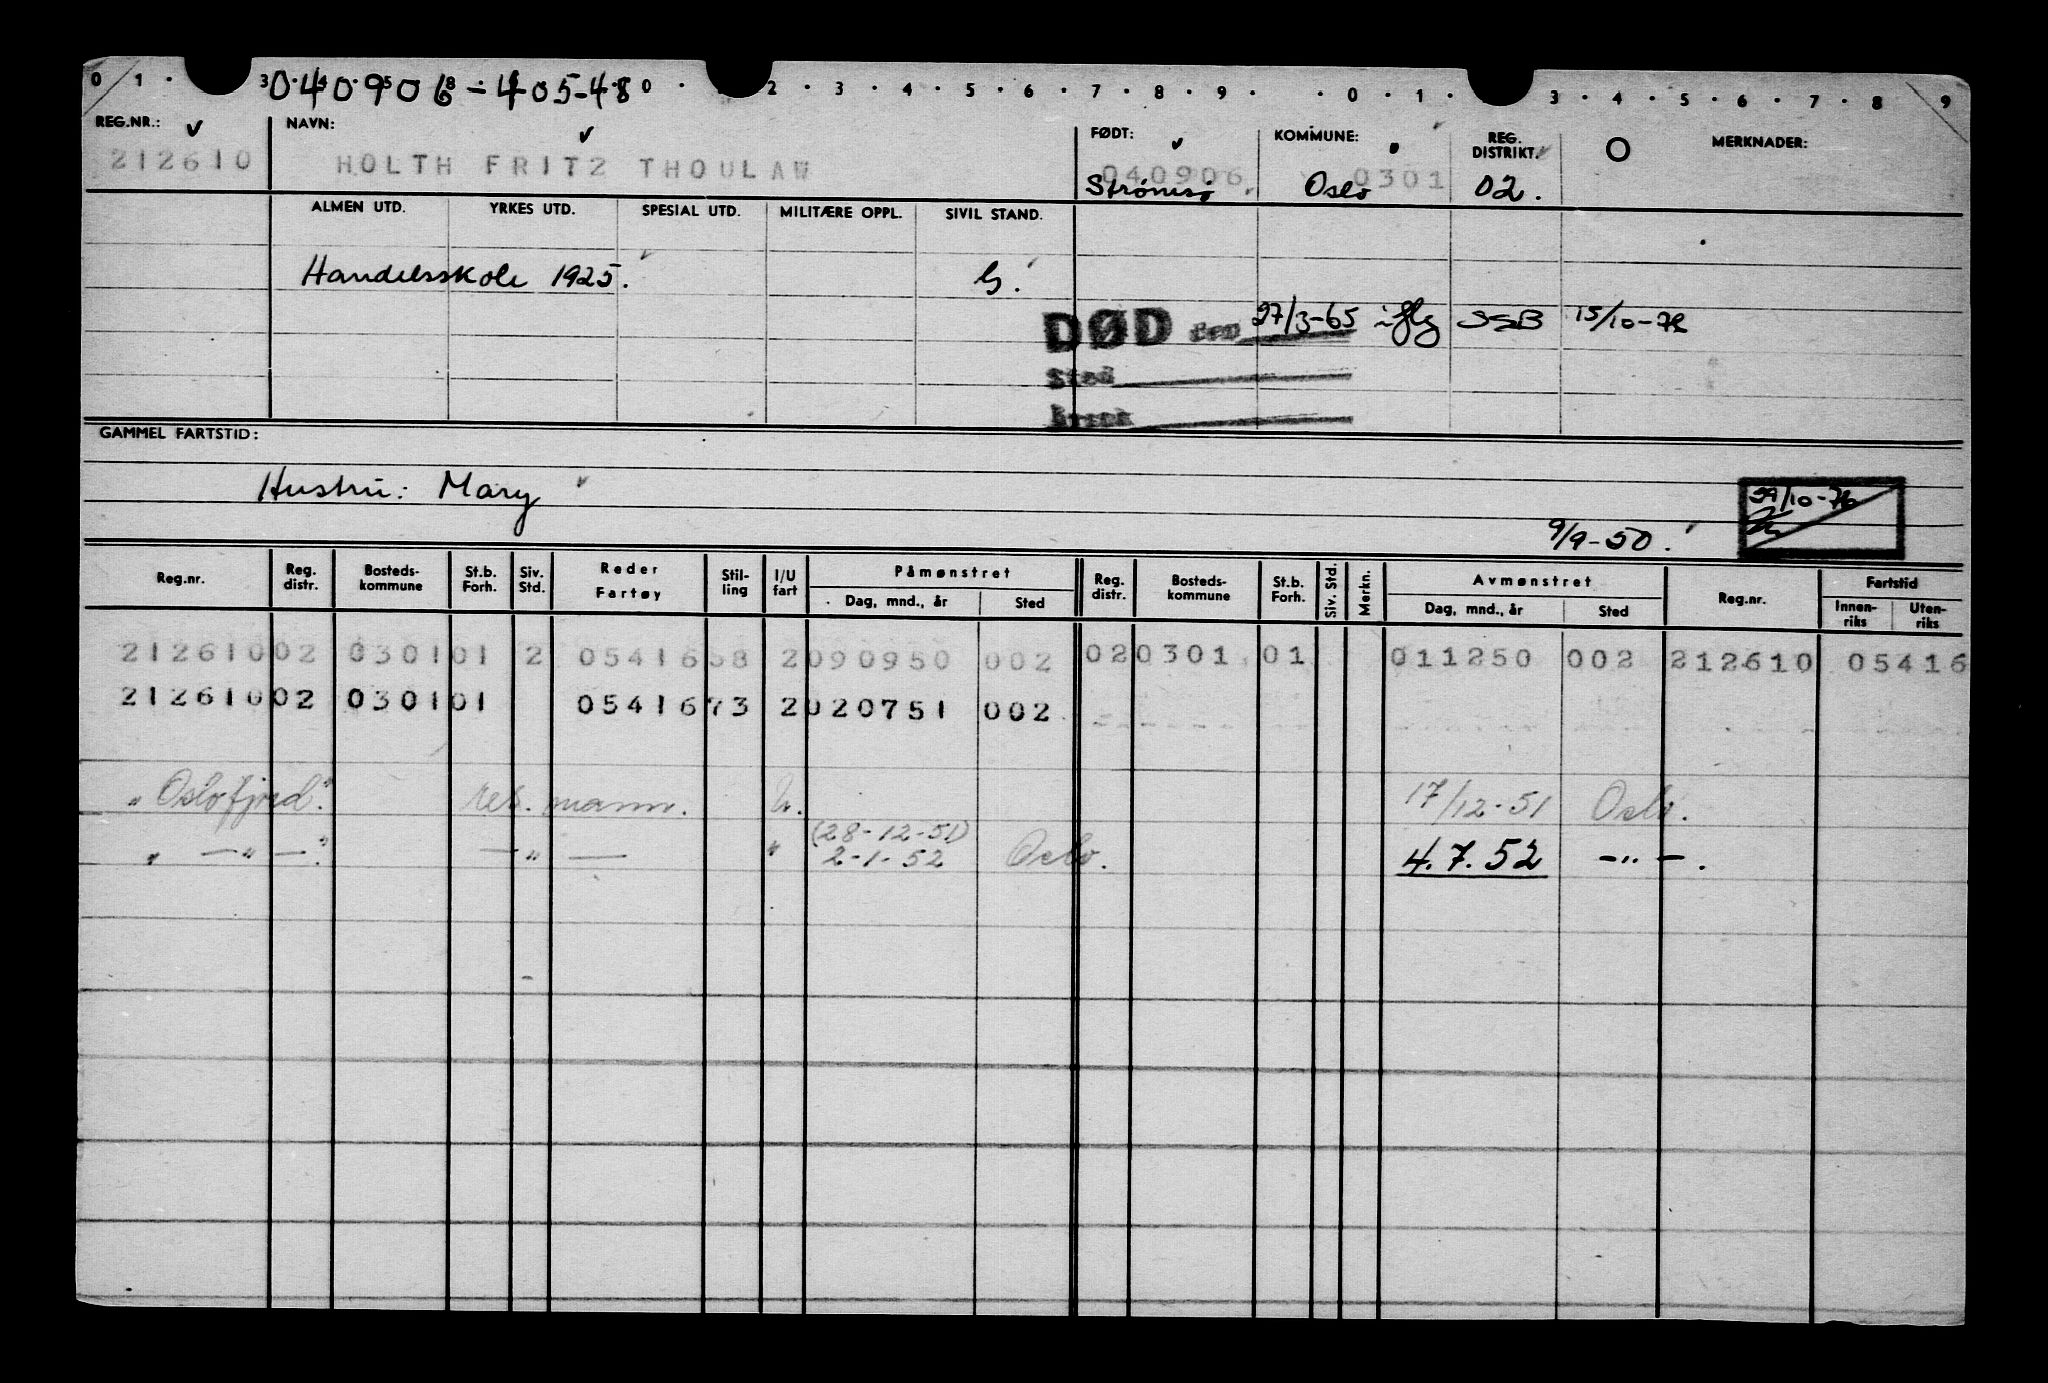 0 1 · 3 · 4 · 5 · 8 · 0 · 2 · 3 · 4 · 5 · 6 · 7 · 8 · 9 · · 0 · 1 · 3 · 4 · 5 · 6 · 7 · 8 9
040906-405-48
REG.NR.: NAVN: FØDT: KOMMUNE: REG. DISTRIKT. O MERKNADER:
212610 HOLTH FRITZ THOULAW 040906 0301
Strømsø Oslo 02.
ALMEN UTD. YRKES UTD. SPESIAL UTD. MILITÆRE OPPL. SIVIL STAND.
Handelsskole 1925. G.
DØD den 27/3-65 iflg SSB 15/10-72
Sted
Årsak
GAMMEL FARTSTID:
Hustru: Mary
29/10-76
9/9-50.
Reg.nr. Reg. distr. Bosteds- kommune St.b. Forh. Siv. Std. Reder Fartøy Stil- ling I/U fart Påmønstret Dag, mnd., år Sted Reg. distr. Bosteds- kommune St.b. Forh. Siv. Std. Merkn. Avmønstret Dag, mnd., år Sted Reg.nr. Fartstid Innen- riks Uten- riks
212610 02 0301 01 2 05416 58 2 090950 002 02 0301 01 011250 002 212610 05416
212610 02 0301 01 05416 73 2 020751 002
"Oslofjord". res. mann. U. 17/12-51 Oslo.
(28-12-51)
" — " — ". — " — " 2-1-52 Oslo. 4.7.52 —"—.